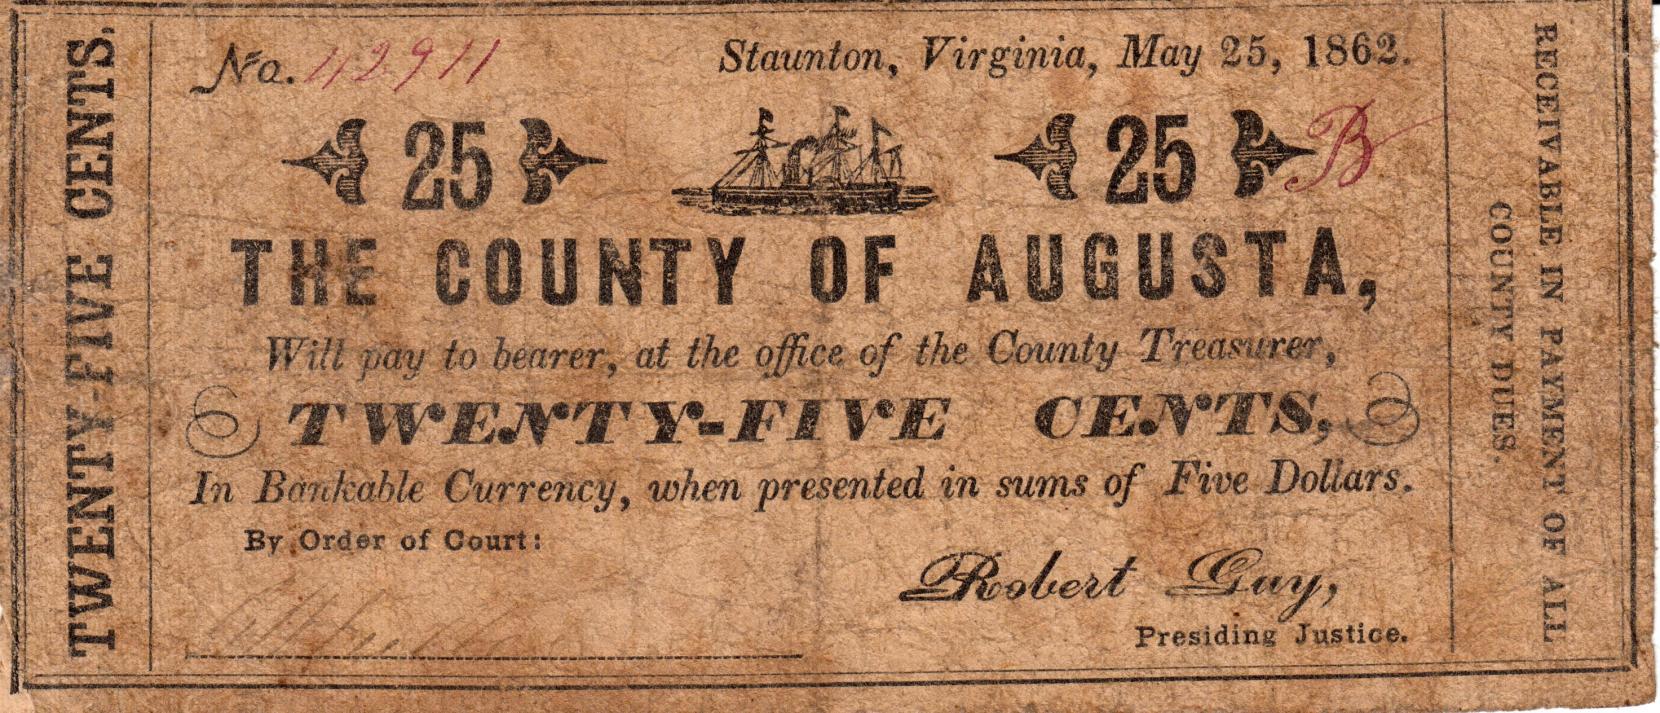 TWENTY-FIVE CENTS.
No. 42911
Staunton, Virginia, May 25, 1862.
25 25 B
THE COUNTY OF AUGUSTA,
Will pay to bearer, at the office of the County Treasurer,
TWENTY-FIVE CENTS,
In Bankable Currency, when presented in sums of Five Dollars.
By Order of Court:
Robert Guy,
Presiding Justice.
RECEIVABLE IN PAYMENT OF ALL
COUNTY DUES.